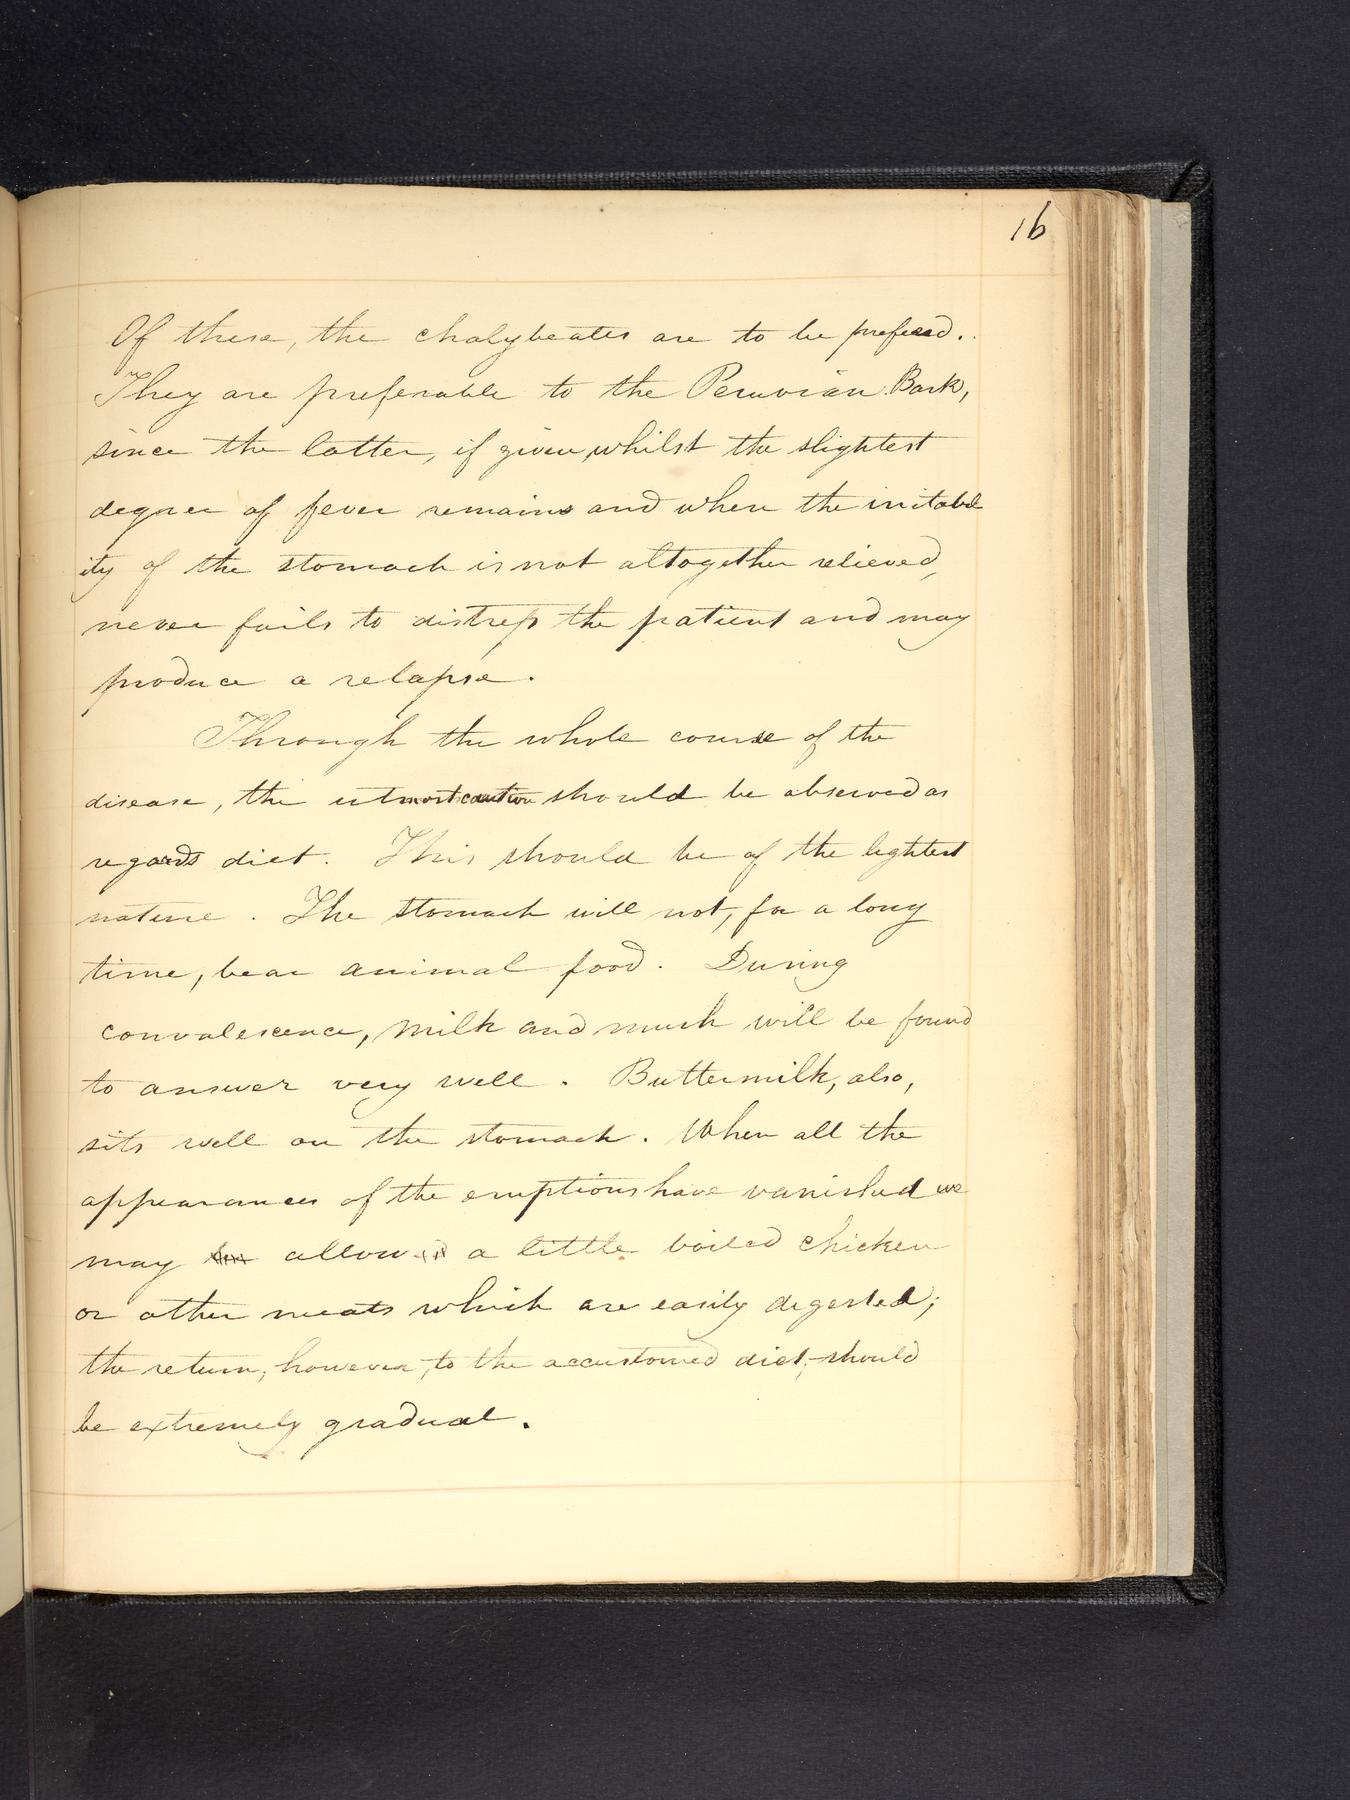 16
Of these, the chalybeates are to be prefered.
They are preferable to the Peruvian Bark,
since the latter, if given, whilst the slightest
degree of fever remains and when the irritabil
ity of the stomach is not altogether relieved,
never fails to distress the patient and may
produce a relapse.
Through the whole course of the
disease, the utmost caution should be observed as
regards diet. This should be of the lightest
nature. The stomach will not, for a long
time, bear animal food. During
convalescence, milk and mush will be found
to answer very well. Buttermilk, also,
sits well on the stomach. When all the
appearances of the eruptions have vanished we
may allow a little boiled chicken
or other meats which are easily digested;
the return, however, to the accustomed diet, should
be extremely gradual.